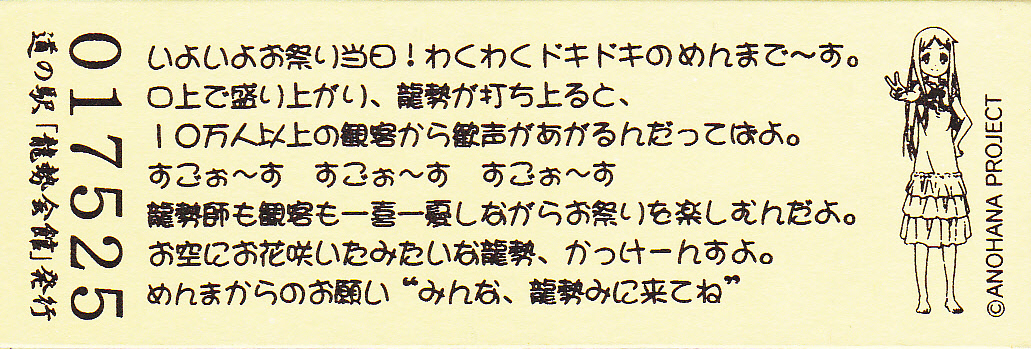 いよいよお祭り当日!わくわくドキドキのめんまで〜す。
口上で盛り上がり、龍勢が打ち上ると、
10万人以上の観客から歓声があがるんだってばよ。
すごぉ〜す　すごぉ〜す　すごぉ〜す
龍勢師も観客も一喜一憂しながらお祭りを楽しむんだよ。
お空にお花咲いたみたいな龍勢、かっけーんすよ。
めんまからのお願い“みんな、龍勢みに来てね”
017525
道の駅「龍勢会館」発行
©ANOHANA PROJECT